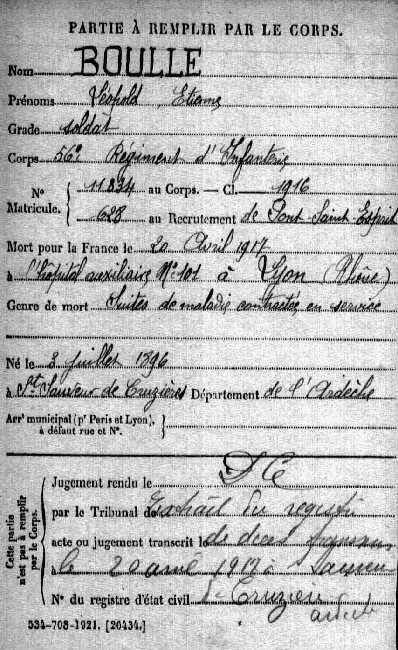 PARTIE À REMPLIR PAR LE CORPS.
Nom BOULLE
Prénoms Léopold, Etienne
Grade soldat
Corps 56e Régiment d'Infanterie
N° Matricule. 11834 au Corps. — Cl. 1916
628 au Recrutement de Pont-Saint-Esprit
Mort pour la France le 20 Avril 1917
à l'hôpital auxiliaire N° 101 à Lyon (Rhône)
Genre de mort Suites de maladie contractée en service
Né le 3 juillet 1896
à St Sauveur de Cruzières Département de l'Ardèche
Arrt municipal (pr Paris et Lyon),
à défaut rue et N°.
Cette partie n'est pas à remplir par le Corps.
Jugement rendu le
par le Tribunal de Extrait du registre
acte ou jugement transcrit le de décès
à le 20 1917 à
N° du registre d'état civil
534-708-1921. [26434.]